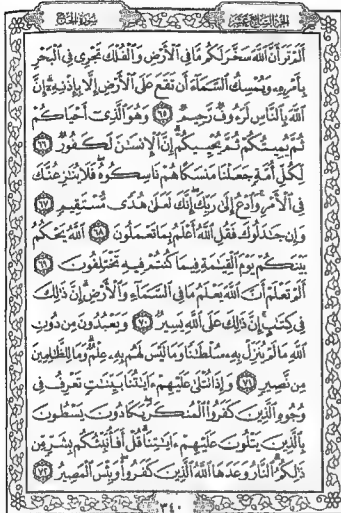 سورة الحج الجزء السابع عشر
أَلَمْ تَرَ أَنَّ ٱللَّهَ سَخَّرَ لَكُم مَّا فِى ٱلْأَرْضِ وَٱلْفُلْكَ تَجْرِى فِى ٱلْبَحْرِ
بِأَمْرِهِۦ وَيُمْسِكُ ٱلسَّمَآءَ أَن تَقَعَ عَلَى ٱلْأَرْضِ إِلَّا بِإِذْنِهِۦٓ إِنَّ
ٱللَّهَ بِٱلنَّاسِ لَرَءُوفٌ رَّحِيمٌ ٦٥ وَهُوَ ٱلَّذِىٓ أَحْيَاكُمْ
ثُمَّ يُمِيتُكُمْ ثُمَّ يُحْيِيكُمْ إِنَّ ٱلْإِنسَٰنَ لَكَفُورٌ ٦٦
لِّكُلِّ أُمَّةٍ جَعَلْنَا مَنسَكًا هُمْ نَاسِكُوهُ فَلَا يُنَٰزِعُنَّكَ
فِى ٱلْأَمْرِ وَٱدْعُ إِلَىٰ رَبِّكَ إِنَّكَ لَعَلَىٰ هُدًى مُّسْتَقِيمٍ ٦٧
وَإِن جَٰدَلُوكَ فَقُلِ ٱللَّهُ أَعْلَمُ بِمَا تَعْمَلُونَ ٦٨ ٱللَّهُ يَحْكُمُ
بَيْنَكُمْ يَوْمَ ٱلْقِيَٰمَةِ فِيمَا كُنتُمْ فِيهِ تَخْتَلِفُونَ ٦٩
أَلَمْ تَعْلَمْ أَنَّ ٱللَّهَ يَعْلَمُ مَا فِى ٱلسَّمَآءِ وَٱلْأَرْضِ إِنَّ ذَٰلِكَ
فِى كِتَٰبٍ إِنَّ ذَٰلِكَ عَلَى ٱللَّهِ يَسِيرٌ ٧٠ وَيَعْبُدُونَ مِن دُونِ
ٱللَّهِ مَا لَمْ يُنَزِّلْ بِهِۦ سُلْطَٰنًا وَمَا لَيْسَ لَهُم بِهِۦ عِلْمٌ وَمَا لِلظَّٰلِمِينَ
مِن نَّصِيرٍ ٧١ وَإِذَا تُتْلَىٰ عَلَيْهِمْ ءَايَٰتُنَا بَيِّنَٰتٍ تَعْرِفُ فِى
وُجُوهِ ٱلَّذِينَ كَفَرُوا۟ ٱلْمُنكَرَ يَكَادُونَ يَسْطُونَ
بِٱلَّذِينَ يَتْلُونَ عَلَيْهِمْ ءَايَٰتِنَا قُلْ أَفَأُنَبِّئُكُم بِشَرٍّ مِّن
ذَٰلِكُمُ ٱلنَّارُ وَعَدَهَا ٱللَّهُ ٱلَّذِينَ كَفَرُوا۟ وَبِئْسَ ٱلْمَصِيرُ ٧٢
٣٤٠